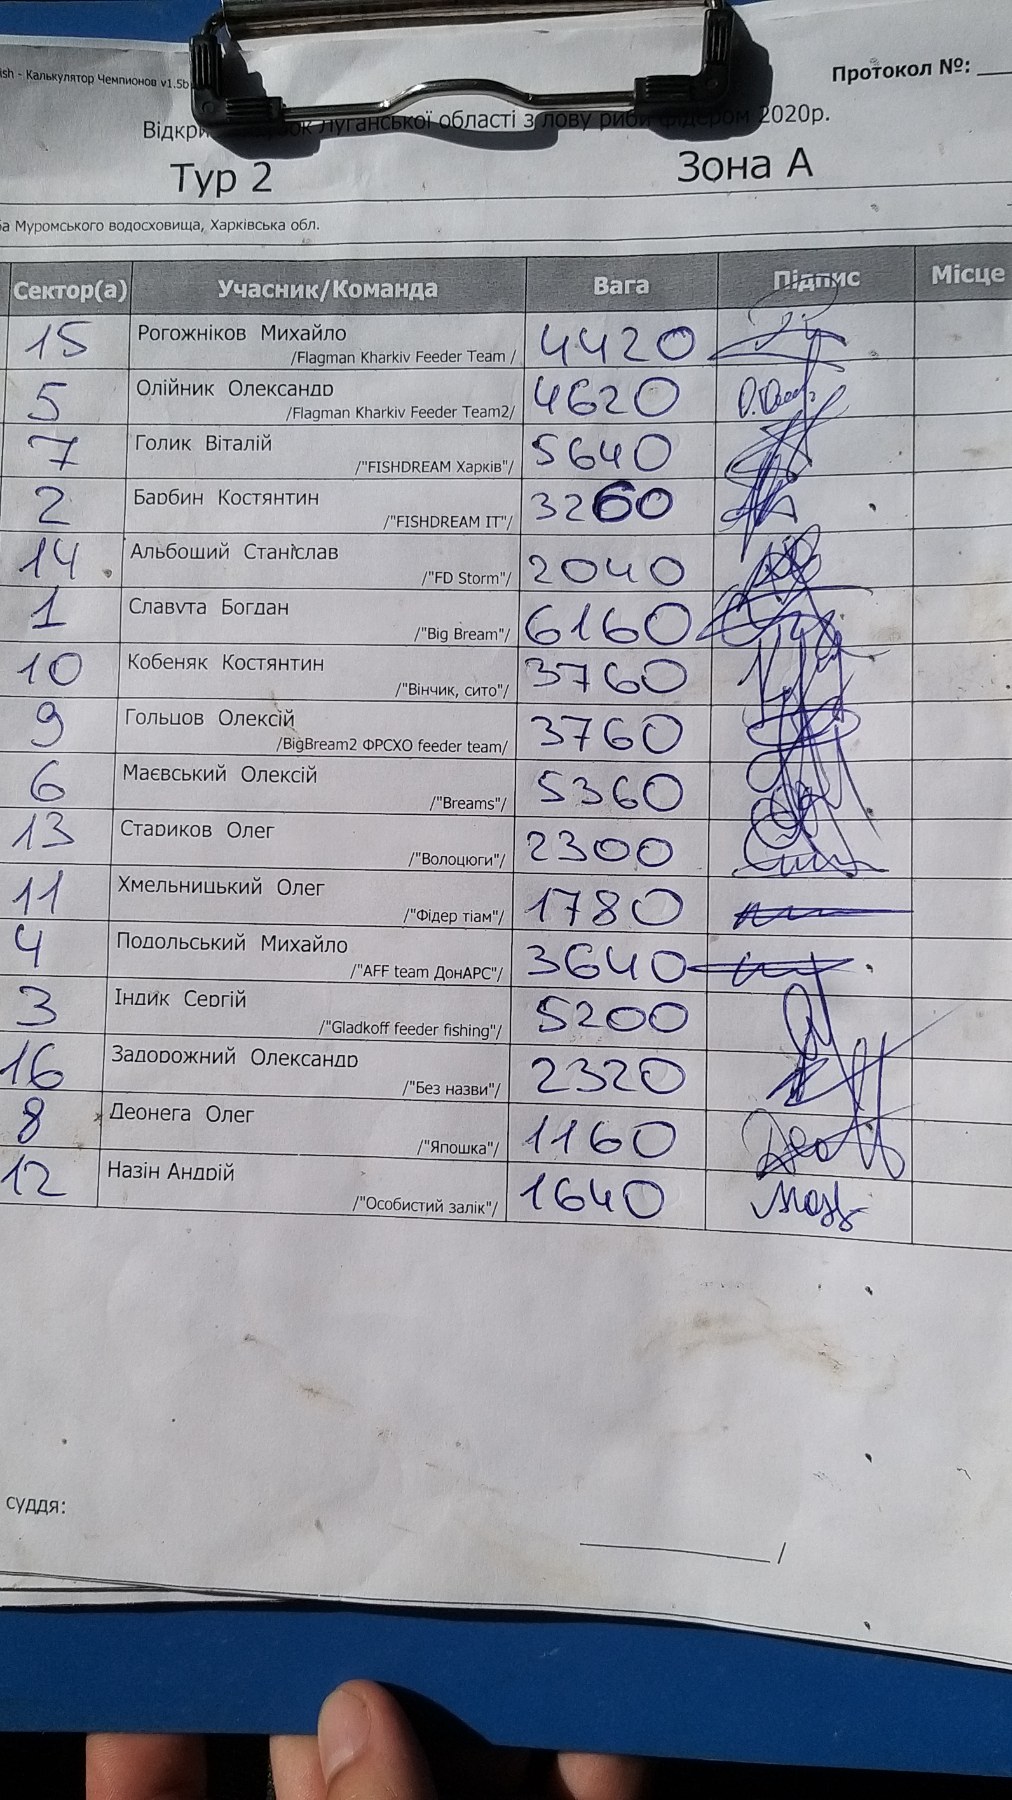 ish - Калькулятор Чемпионов v1.5b
Протокол №: ___
Луганської області з лову риби фідером 2020р.
Тур 2 Зона А
Муромського водосховища, Харківська обл.
Сектор(а) Учасник/Команда Вага Підпис Місце
15 Рогожніков Михайло 4420
/Flagman Kharkiv Feeder Team /
5 Олійник Олександр 4620
/Flagman Kharkiv Feeder Team2/
7 Голик Віталій 5640
/"FISHDREAM Харків"/
2 Барбин Костянтин 3260
/"FISHDREAM IT"/
14 Альбоший Станіслав 2040
/"FD Storm"/
1 Славута Богдан 6160
/"Big Bream"/
10 Кобеняк Костянтин 3760
/"Вінчик, сито"/
9 Гольцов Олексій 3760
/BigBream2 ФРСХО feeder team/
6 Маєвський Олексій 5360
/"Breams"/
13 Стариков Олег 2300
/"Волоцюги"/
11 Хмельницький Олег 1780
/"Фідер тіам"/
4 Подольський Михайло 3640
/"AFF team ДонАРС"/
3 Індик Сергій 5200
/"Gladkoff feeder fishing"/
16 Задорожний Олександр 2320
/"Без назви"/
8 Деонега Олег 1160
/"Япошка"/
12 Назін Андрій 1640
/"Особистий залік"/
суддя:
___________/